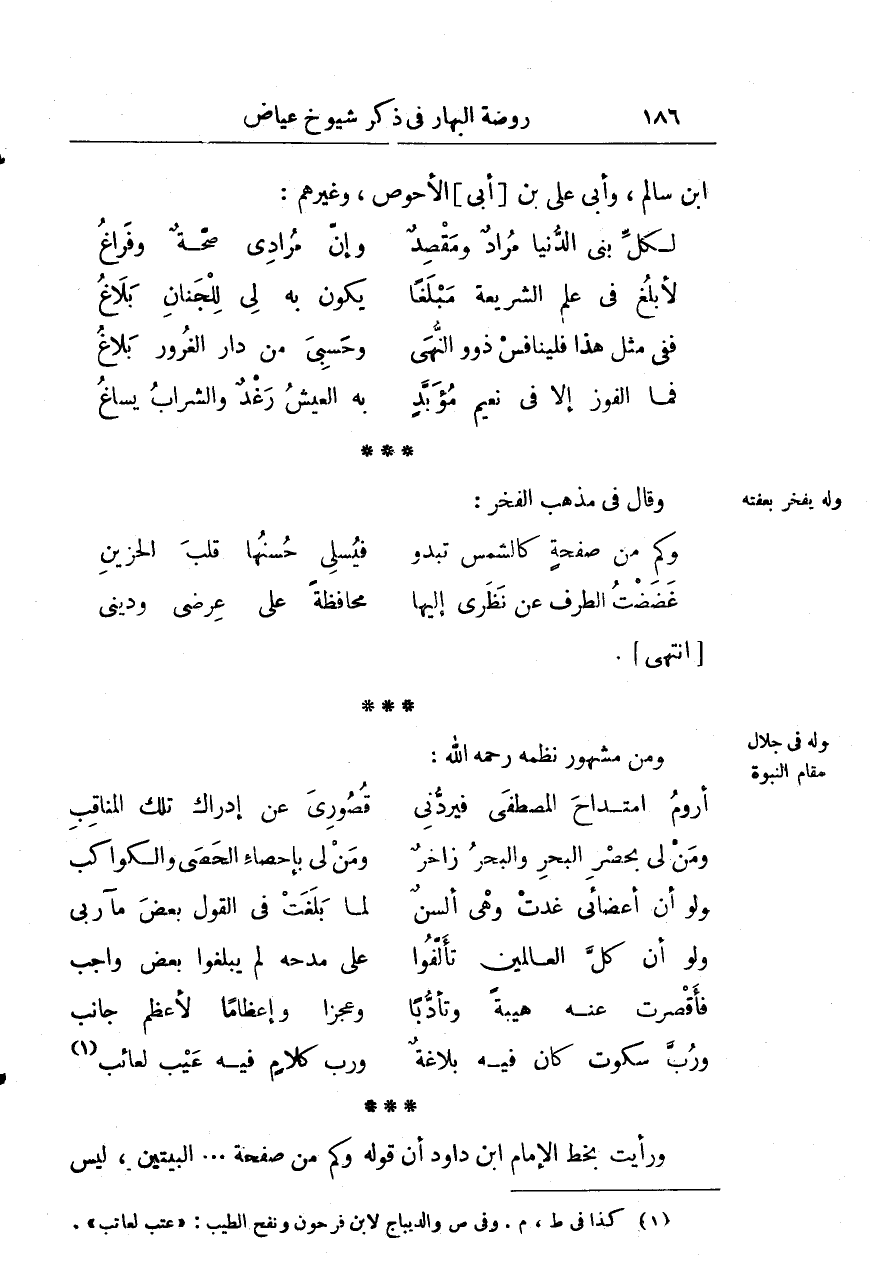 ١٨٦ روضة البهار فى ذكر شيوخ عياض
ابن سالم ، وأبى على بن [أبى] الأحوص ، وغيرهم :
لـكلِّ بنى الدُّنيا مُرادٌ ومَقْصِدٌ وإنّ مُرادِى صحّةٌ وفَراغُ
لأبلُغ فى علم الشريعة مَبْلَغًا يكون به لِى لِلْجَنانِ بَلَاغُ
ففى مثل هذا فلينافسْ ذوو النُّهَى وحَسبِىَ من دار الغُرور بَلاغُ
فمـا الفوز إلا فى نعيم مُؤَبَّدٍ به العيشُ رَغْدٌ والشرابُ يساغُ
***
وله يفخر بعفته
وقال فى مذهب الفخر :
وكم من صفحةٍ كالشمس تبدو فيُسلِى حُسنُها قلبَ الحزينِ
غَضَضْتُ الطرف عن نَظَرِى إليها محافظةً على عِرضى ودينى
[ انتهى ] .
***
وله فى جلال
مقام النبوة
ومن مشهور نظمه رحمه الله :
أرومُ امتـداحَ المصطفَى فيردُّنِى قُصُورِىَ عن إدراك تلك المناقبِ
ومَنْ لى بحصْرِ البحرِ والبحرُ زاخرٌ ومَنْ لى بإحصاءِ الحَصَى والـكواكب
ولو أن أعضائى غدتْ وهْى ألسنٌ لمـا بَلَغَتْ فى القول بعضَ مآربى
ولو أن كلَّ العـالمين تألَّفُوا على مدحه لم يبلغوا بعض واجب
فأَقْصرت عنـه هيبةً وتأدُّبًا وعجزا وإعظامًا لأعظم جانب
ورُبَّ سكوت كان فيـه بلاغةٌ ورب كلامٍ فيـه عَيْب لعائب(١)
***
ورأيت بخط الإمام ابن داود أن قوله وكم من صفحة ... البيتين ، ليس
(١) كذا فى ط ، م . وفى ص والديباج لابن فرحون ونفح الطيب : «عتب لعاتب» .